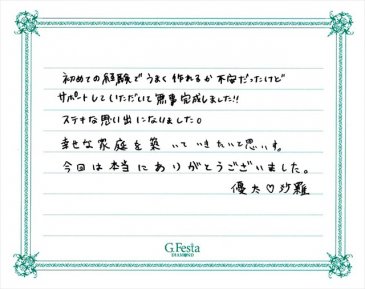 初めての経験でうまく作れるか不安だったけど
サポートしていただいて無事完成しました!!
ステキな思い出になりました。
幸せな家庭を築いていきたいと思います。
今回は本当にありがとうございました。
優太♡沙羅
G.Festa
DIAMOND